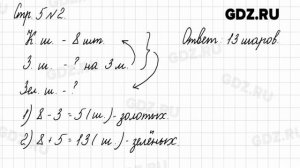 GDZ.RU
Стр. 5 № 2.
К. ш. - 8 шт.
З. ш. - ? на 3 м.
Зел. ш. - ?
Ответ. 13 шаров.
1) 8 - 3 = 5 (ш.) - золотых.
2) 8 + 5 = 13 (ш.) - зелёных.
GDZ.RU